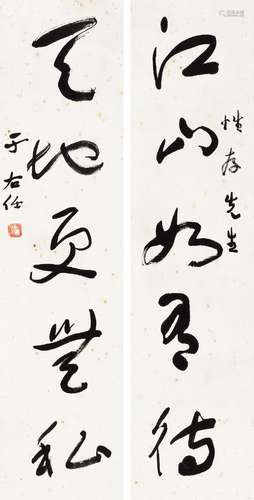 江山如有待
性存先生
天地更無私
于右任